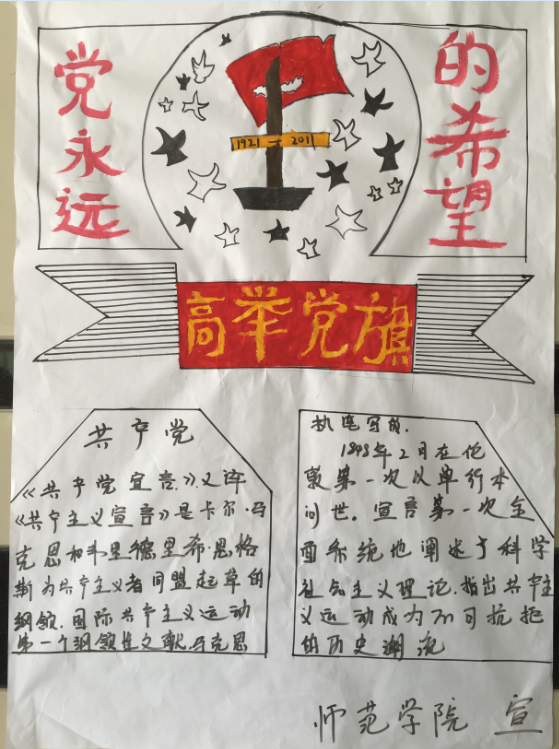 党永远
的希望
1921-2011
高举党旗
共产党
《共产党宣言》又译
《共产主义宣言》是卡尔·马
克思和弗里德里希·恩格
斯为共产主义者同盟起草的
纲领,国际共产主义运动
第一个纲领性文献,马克思
执笔写成.
1848年2月在伦
敦第一次以单行本
问世。宣言第一次全
面系统地阐述了科学
社会主义理论,指出共产主
义运动成为不可抗拒
的历史潮流
师范学院 宣